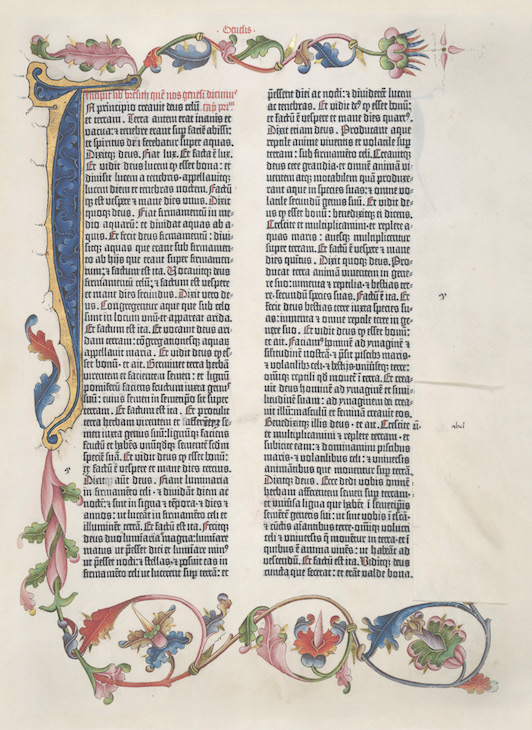 Genesis
Incipit lib bresith quē nos genesī dicimꝰ
IN principio creauit deus celū ca̅p pmū
et terram. Terra autem erat inanis et
vacua: et tenebre erant sup faciē abissi:
et spiritus dni ferebatur super aquas.
Dixitq; deus. Fiat lux. Et facta ē lux.
Et vidit deus lucem cp esset bona: et
diuisit lucem a tenebris·appellauitq;
lucem diem et tenebras noctem. Factūq;
est vespere et mane dies vnus. Dixit
quoq; deus. Fiat firmamentū in me-
dio aquarū: et diuidat aquas ab a-
quis. Et fecit deus firmamentū: diui-
sitq; aquas que erant sub firmamen-
to ab hijs que erant super firmamen-
tum: et factum est ita. Vocauitq; deus
firmamentū celū: et factum est vespere
et mane dies secundus. Dixit vero de-
us. Congregentur aque que sub celo
sunt in locum vnū et appareat arida.
Et factum est ita. Et vocauit deus ari-
dam terram: cōgregationesq; aquarū
appellauit maria. Et vidit deus cp es-
set bonū·et ait. Germinet terra herbā
virentem et facientem semen: et lignū
pomiferū faciens fructum iuxta genus
suū: cuius semen in semetipo sit super
terram. Et factum est ita. Et protulit
terra herbam virentem et facientem se-
men iuxta genus suū: lignūq; faciens
fructū et habēs vnūqdq; sementē scdm
speciē suā. Et vidit deus cp esset bonū:
et factū ē vespere et mane dies tercius.
Dixit autē deus. Fiant luminaria
in firmamēto celi·et diuidāt diem ac
noctē: et sint in signa et tēpora·et dies et
annos: ut luceāt in firmamēto celi et
illuminēt terrā. Et factū est ita. Fecitq;
deus duo luminaria magna: luminare
maius ut pesset diei et luminare minꝰ
ut pesset nocti: et stellas·et posuit eas in
firmamēto celi ut lucerent sup terrā: et
pessent diei ac nocti: et diuiderēt lucem
ac tenebras. Et vidit deꝰ cp esset bonū:
et factū ē vespere et mane dies quartꝰ.
Dixit etiam deus. Producant aque
reptile anime viuentis et volatile sup
terram: sub firmamēto celi. Creauitq;
deus cete grandia·et omnē animā vi-
uentem atq; motabilem quā produxe-
rant aque in species suas: et omne vo-
latile secundū genus suū. Et vidit de-
us cp esset bonū: benedixitq; eis dicens.
Crescite et multiplicamini·et replete a-
quas maris: auesq; multiplicentur
super terram. Et factū ē vespere et mane
dies quintus. Dixit quoq; deus. Pro-
ducat terra animā viuentem in gene-
re suo: iumenta et reptilia·et bestias ter-
re·secundū species suas. Factū ē ita. Et
fecit deus bestias terre iuxta species su-
as: iumenta et omne reptile terre in ge-
nere suo. Et vidit deus cp esset bonū:
et ait. Faciamꝰ hominē ad ymaginē et
silitudinē nostrā·et p̄sit piscibꝫ maris·
et volatilibꝫ celi·et bestijs vniuseq; terre:
omniq; reptili qd mouet ī terra. Et crea-
uit deus hominē ad ymaginē et simi-
litudinē suam: ad ymaginem dei crea-
uit illū: masculū et feminā creauit eos.
Benedixitq; illis deus·et ait. Crescite
et multiplicamini et replete terram·et
subicite eam: et dominamini piscibus
maris·et volatilibus celi: et vniuersis
animātibus que mouentur sup terrā.
Dixitq; deus. Ecce dedi vobis omnē
herbam afferentem semen sup terram·
et vniūsa ligna que habēt ī semetipis
sementē generis sui: ut sint vobis ī escā·
et cūctis aīantibus terre·oīniq; volucri
celi·et vniuersis q mouētur in terra·et ī
quibus ē anima viuēs: ut habeāt ad
vescendū. Et factū est ita. Viditq; deus
cuncta que fecerat: et erāt valde bona.